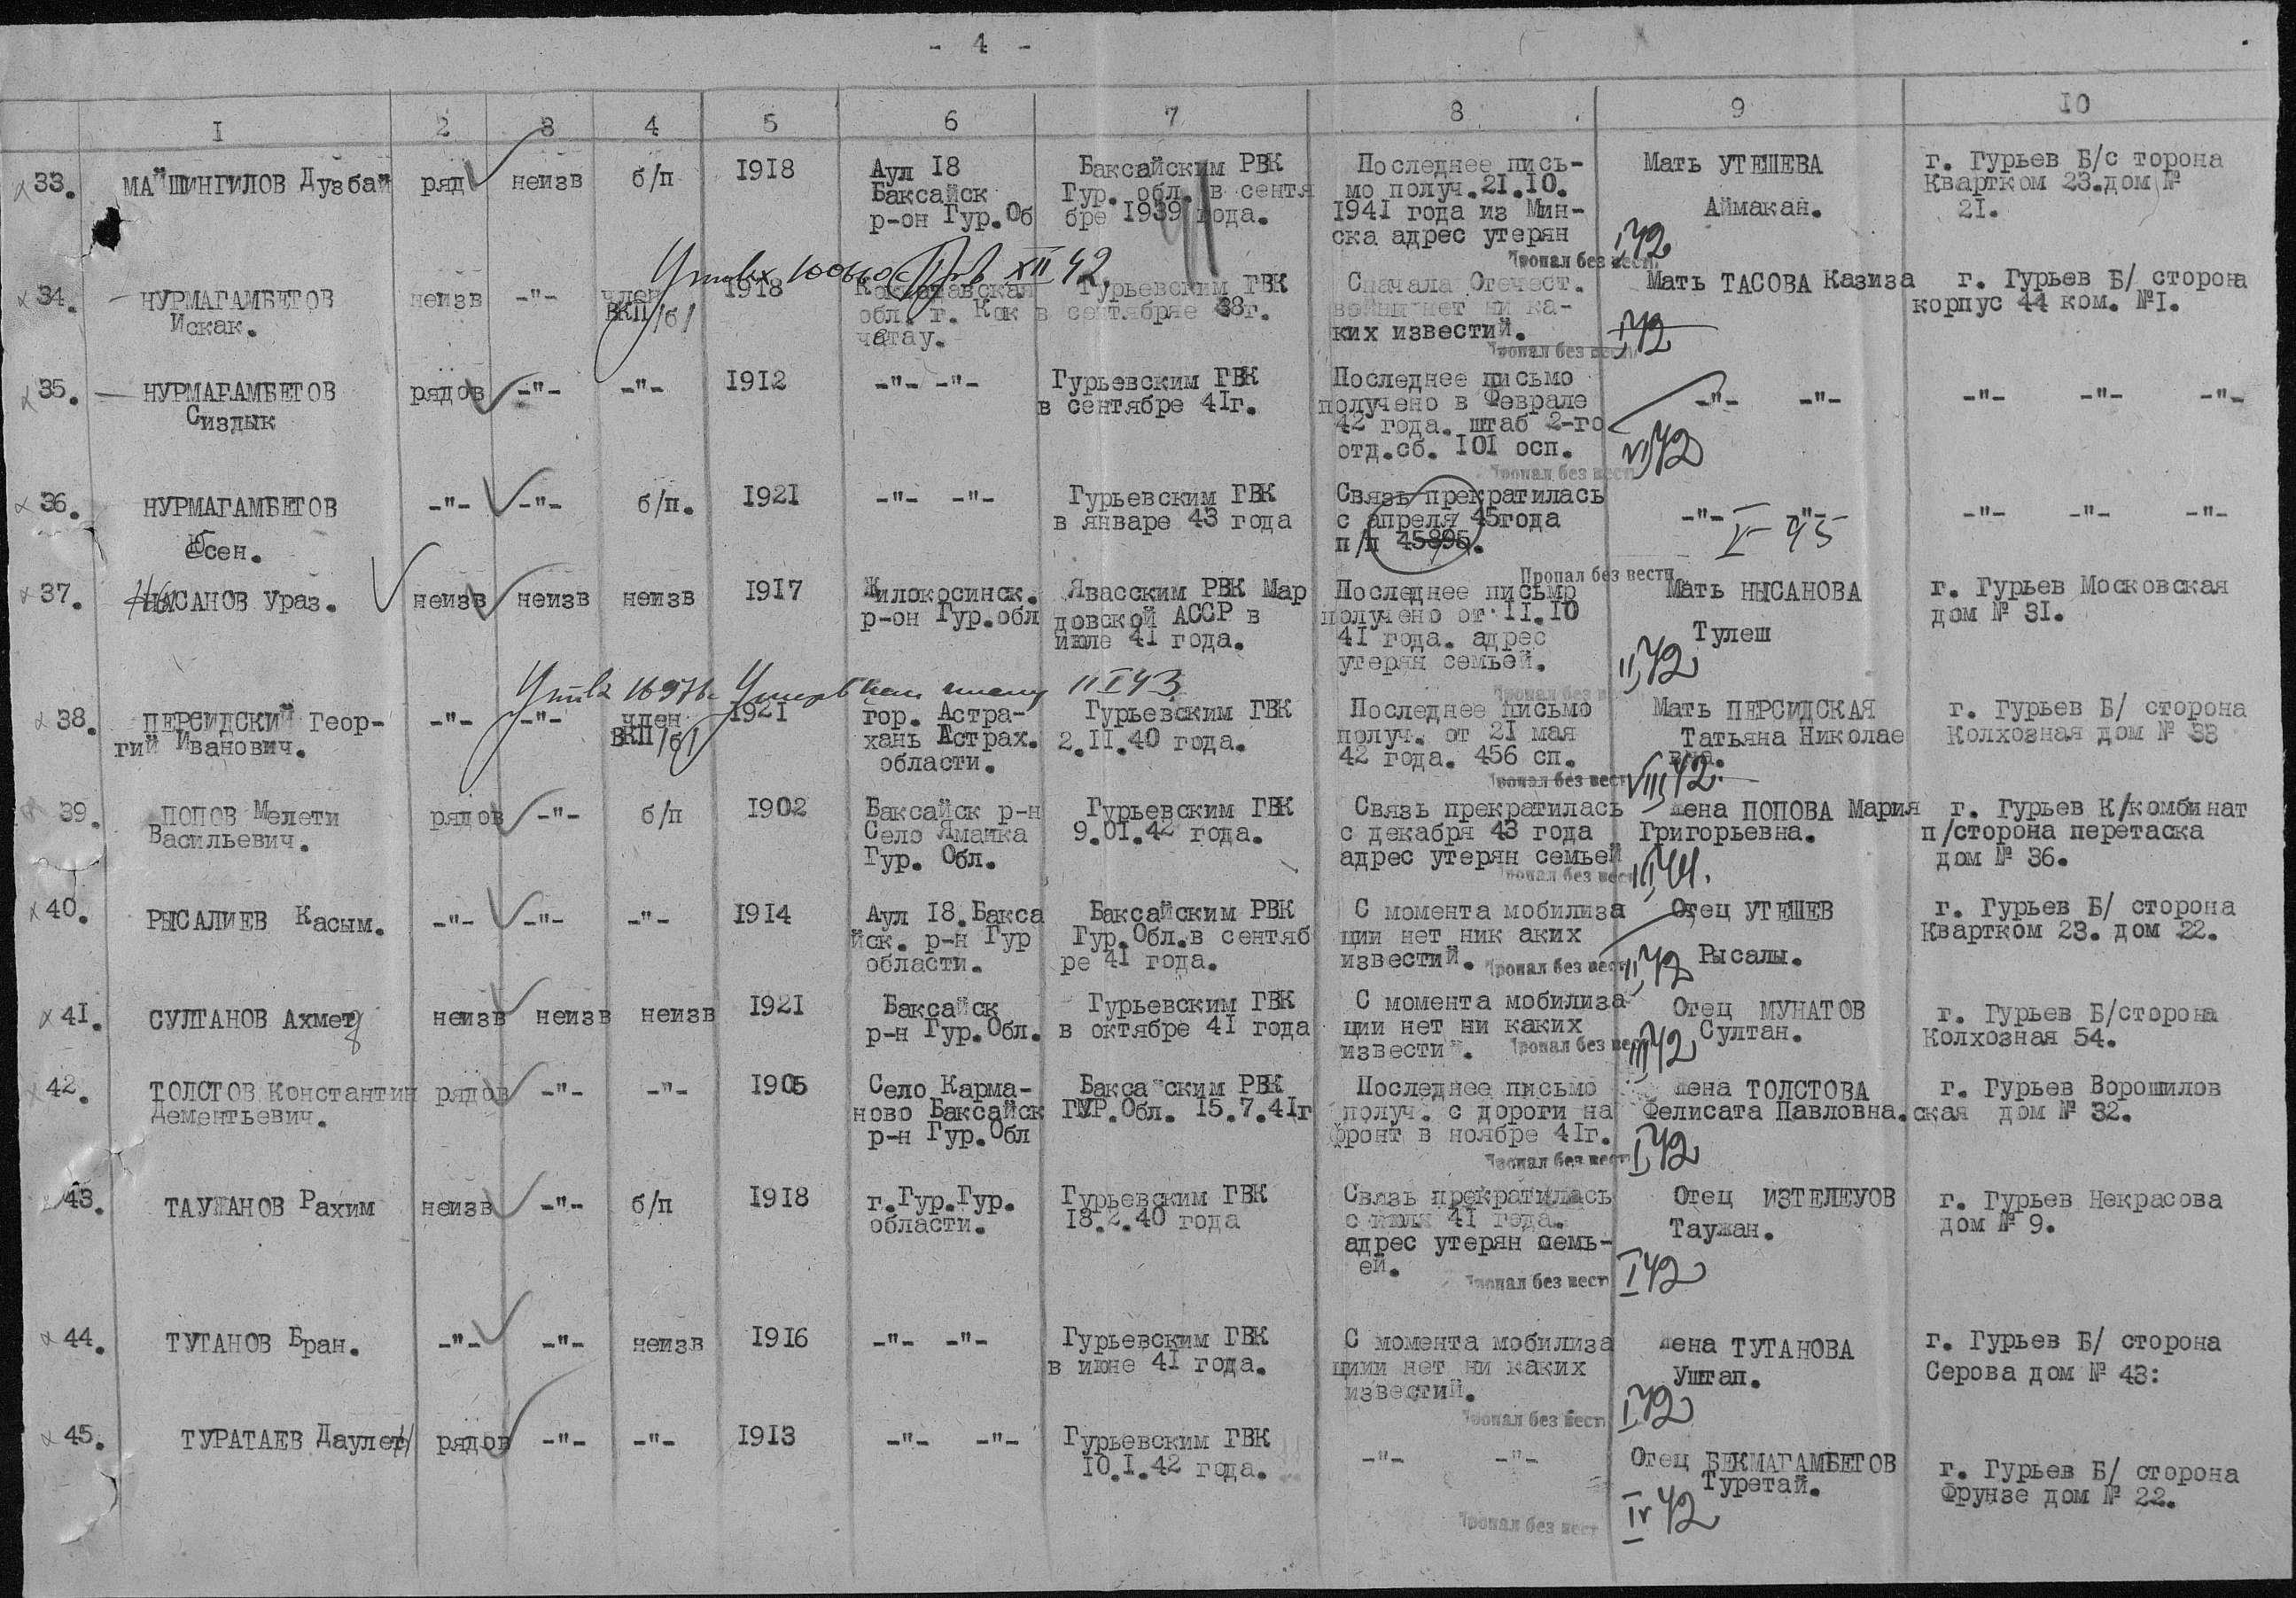 - 4 -
I 2 3 4 5 6 7 8 9 10
33. МАЙШИНГИЛОВ Дузбай ряд неизв б/п 1918 Аул 18 Баксайским РВК Последнее пись- Мать УТЕШЕВА г. Гурьев Б/с торона
Баксайск Гур. обл. в сентя мо получ.21.10. Квартком 23.дом №
р-он Гур.Об бре 1939 года. 1941 года из Мин- Аймакан. 21.
ска адрес утерян I 42
Пропал без вести
XII 42
34. НУРМАГАМБЕТОВ неизв -"- член 1918 Гурьевским ГВК Сначала Отечест. Мать ТАСОВА Казиза г. Гурьев Б/ сторона
Искак. ВКП/б/ обл. г. Кок в сентябряе 38г. войны нет ни ка- корпус 44 ком. №I.
четау. ких известий. I 42
Пропал без вести
35. НУРМАГАМБЕТОВ рядов -"- -"- 1912 -"- -"- Гурьевским ГВК Последнее письмо -"- -"- -"- -"- -"-
Сиздык в сентябре 41г. получено в Феврале
42 года. штаб 2-го
отд.сб. 101 осп. VI 42
Пропал без вести
36. НУРМАГАМБЕТОВ -"- -"- б/п. 1921 -"- -"- Гурьевским ГВК Связь прекратилась -"- -"- -"- -"- -"-
в январе 43 года с апреля 45года V-45
сен. п/п 45895.
Пропал без вести
37. НЫСАНОВ Ураз. неизв неизв неизв 1917 Жилокосинск. Явасским РВК Мар Последнее письмо Мать НЫСАНОВА г. Гурьев Московская
р-он Гур.обл довской АССР в получено от 11.10 дом № 31.
июле 41 года. 41 года. адрес Тулеш
утерян семьей. II 42
Пропал без вести
II I 43
38. ПЕРСИДСКИЙ Геор- -"- -"- член 1921 гор. Астра- Гурьевским ГВК Последнее письмо Мать ПЕРСИДСКАЯ г. Гурьев Б/ сторона
гий Иванович. ВКП/б/ хань Астрах. 2.II.40 года. получ. от 21 мая Татьяна Николае Колхозная дом № 33
области. 42 года. 456 сп. вна.
Пропал без вести VIII 42.
39. ПОПОВ Мелети рядов -"- б/п 1902 Баксайск р-н Гурьевским ГВК Связь прекратилась Жена ПОПОВА Мария г. Гурьев К/комбинат
Васильевич. Село Яманка 9.01.42 года. с декабря 43 года Григорьевна. п/сторона перетаска
Гур. Обл. адрес утерян семьей дом № 36.
Пропал без вести III 44.
40. РЫСАЛИЕВ Касым. -"- -"- -"- 1914 Аул 18.Бакса Баксайским РВК С момента мобилиза Отец УТЕШЕВ г. Гурьев Б/ сторона
йск. р-н Гур Гур.Обл.в сентяб ции нет ник аких Квартком 23. дом 22.
области. ре 41 года. известий. Рысалы.
Пропал без вести II 42
41. СУЛТАНОВ Ахмед неизв неизв неизв 1921 Баксайск Гурьевским ГВК С момента мобилиза Отец МУНАТОВ г. Гурьев Б/сторона
р-н Гур.Обл. в октябре 41 года ции нет ни каких Султан. Колхозная 54.
извести". Пропал без вести III 42
42. ТОЛСТОВ Константин рядов -"- -"- 1905 Село Карма- Бакса"ским РВК Последнее письмо Жена ТОЛСТОВА г. Гурьев Ворошилов
Дементьевич. ново Баксайск ГУР.Обл. 15.7.41г получ. с дороги на Фелисата Павловна. ская дом № 32.
р-н Гур.Обл фронт в ноябре 41г.
Пропал без вести I 42
43. ТАУЖАНОВ Рахим неизв -"- б/п 1918 г.Гур.Гур. Гурьевским ГВК Связь прекратилась Отец ИЗТЕЛЕУОВ г. Гурьев Некрасова
области. 18.2.40 года с июля 41 года. Таужан. дом № 9.
адрес утерян семь-
ей.
Пропал без вести I 42
44. ТУГАНОВ Бран. -"- -"- неизв 1916 -"- -"- Гурьевским ГВК С момента мобилиза Жена ТУГАНОВА г. Гурьев Б/ сторона
в июне 41 года. циии нет ни каких Уштап. Серова дом № 43:
известий.
Пропал без вести I 42
45. ТУРАТАЕВ Даулет рядов -"- -"- 1913 -"- -"- Гурьевским ГВК -"- -"- Отец БЕКМАГАМБЕТОВ г. Гурьев Б/ сторона
10.I.42 года. Туретай. Фрунзе дом № 22.
Пропал без вести IV 42